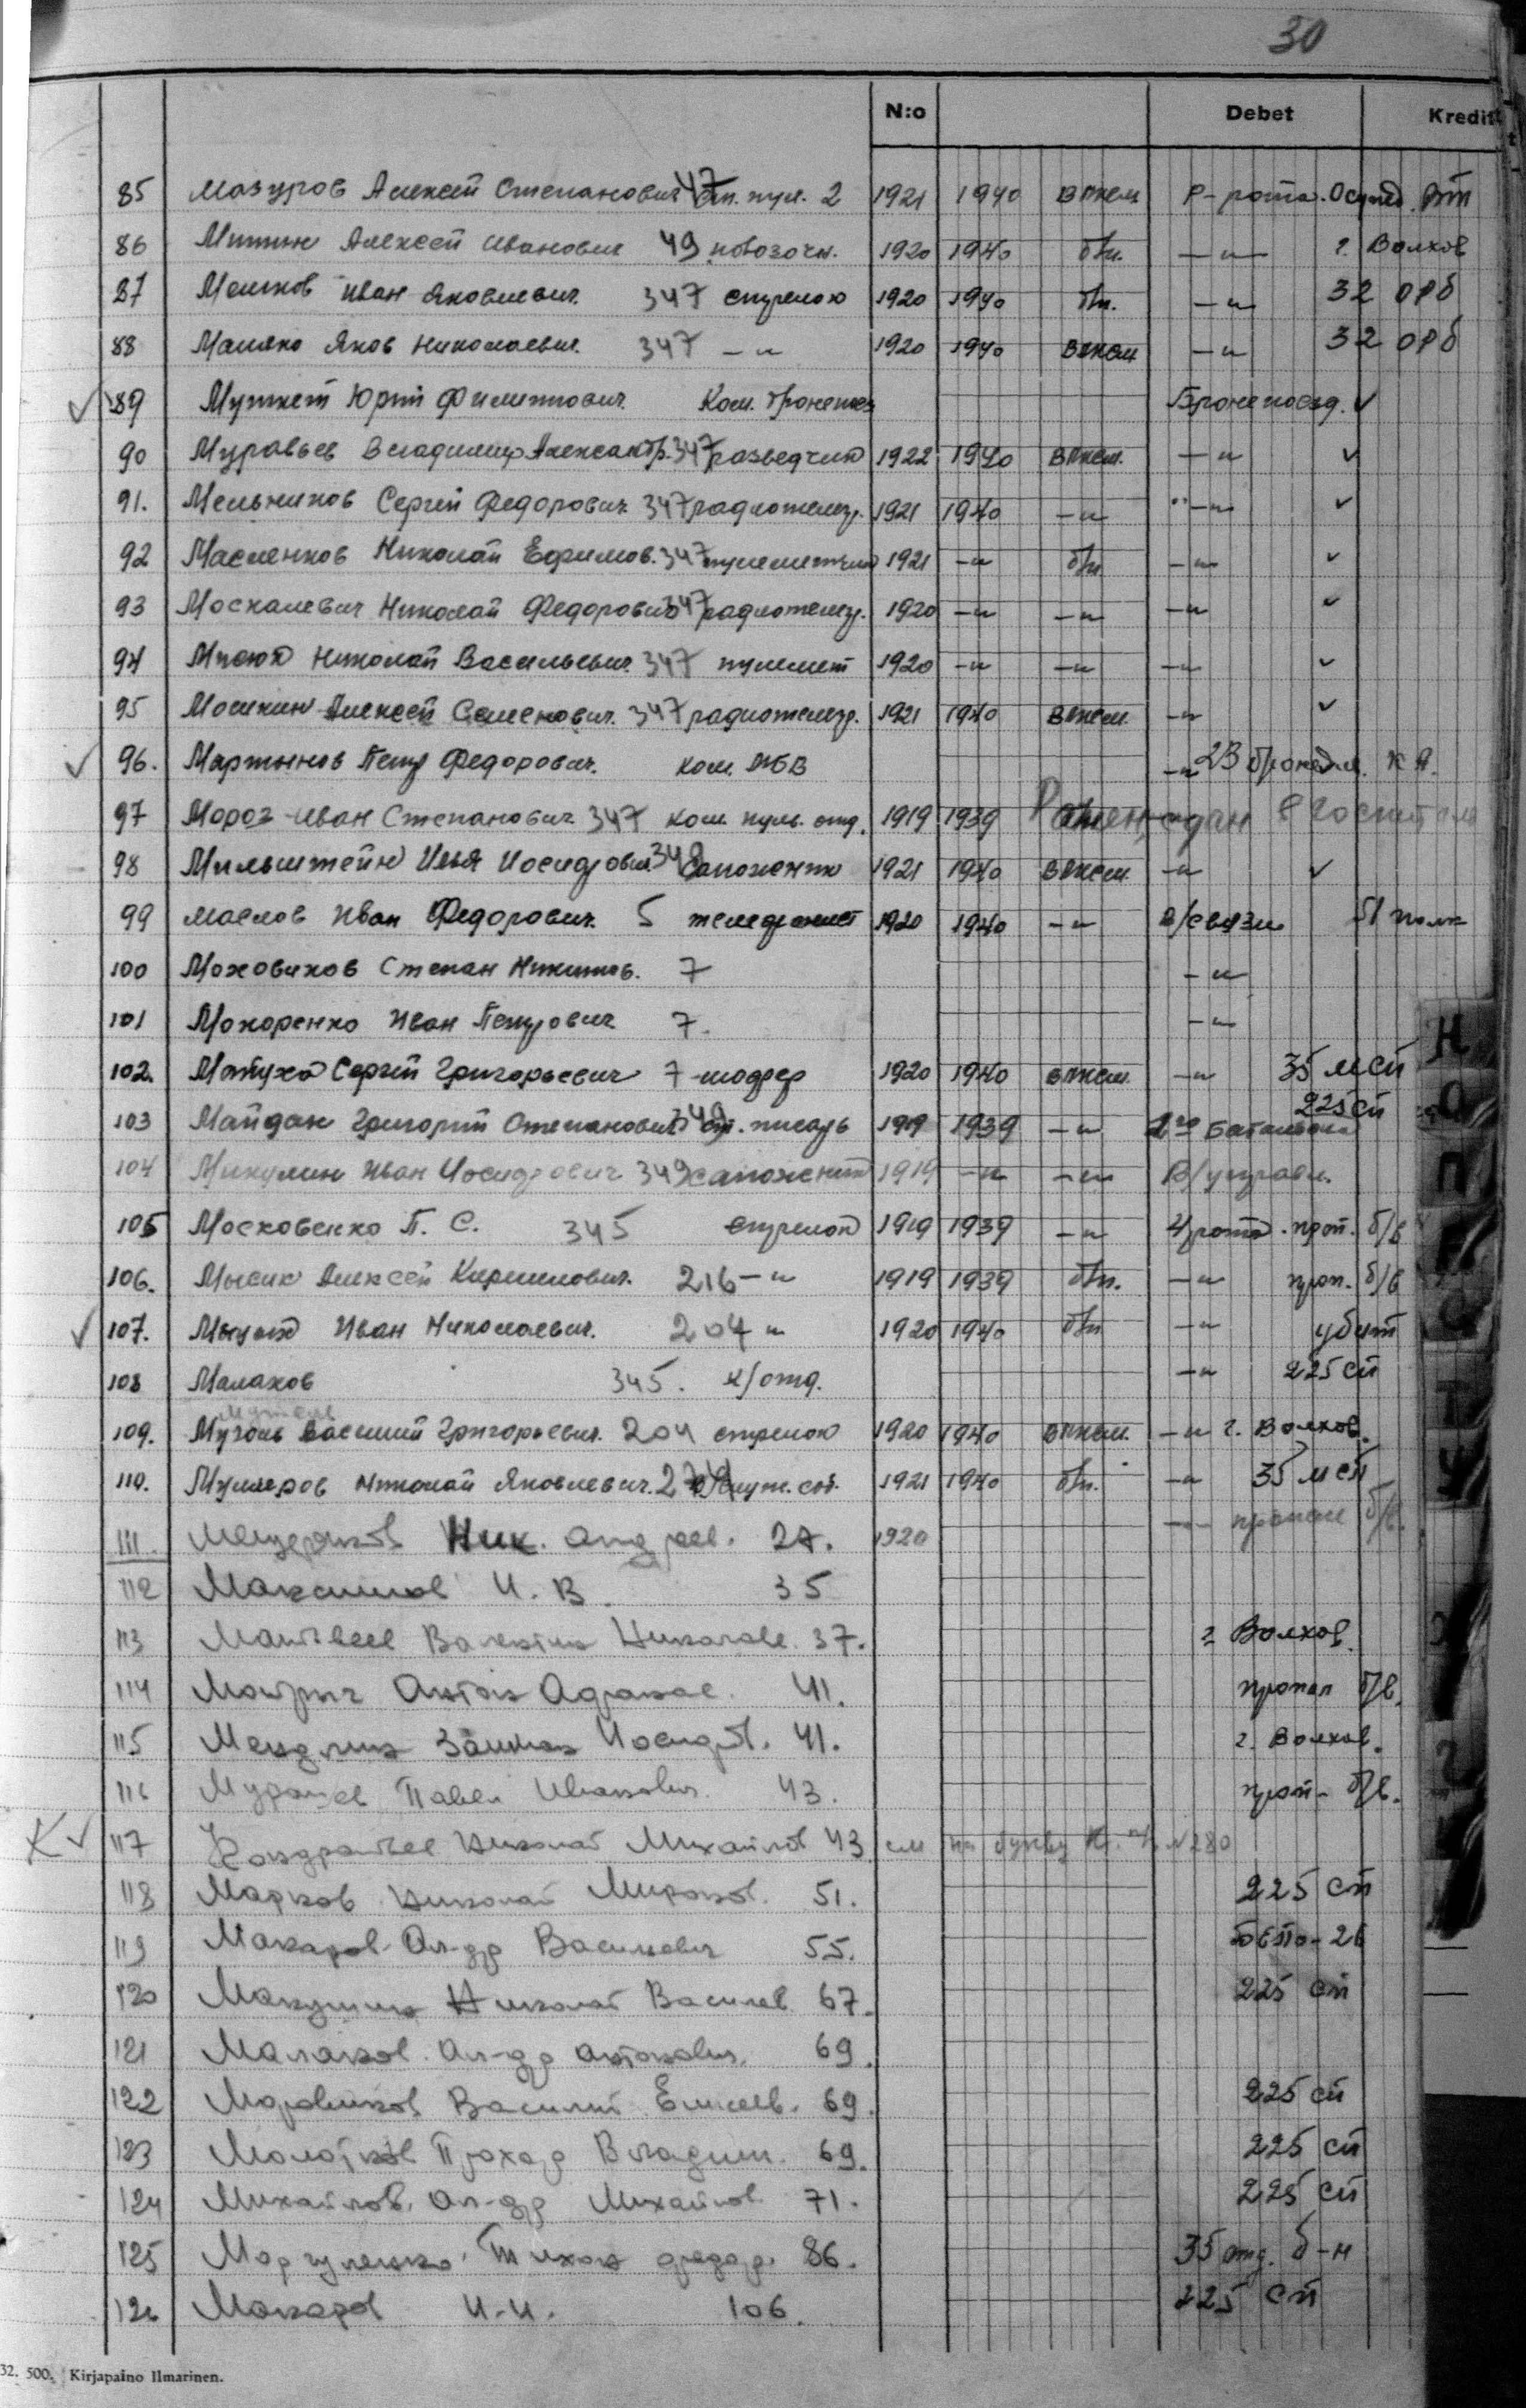 30
N:o Debet Kredit
85 Мазуров Алексей Степанович 47 ст. пул. 2 1921 1940 влксм Р-рота. Осужд. ВТ
86 Митин Алексей Иванович 49 повозочн. 1920 1940 б/п. —"— г. Волхов
87 Иван Яковлевич. 347 стрелок 1920 1940 б/п. —"— 32 орб
88 Яков Николаевич. 347 —"— 1920 1940 влксм —"— 32 орб
89 Юрий Ком. Бронепоезд. ✓
90 Муравьев Владимир Александр. 347 разведчик 1922 1940 влксм. —"— ✓
91. Мельников Сергей Федорович 347 1921 1940 —"— —"— ✓
92 Масленков Николай Ефимов. 347 пулеметчик 1921 —"— б/п —"— ✓
93 Москалевич Николай Федорович 347 1920 —"— —"— —"— ✓
94 Николай Васильевич 347 пулемет 1920 —"— —"— —"— ✓
95 Мошкин Алексей Семенович. 347 1921 1940 влксм. —"— ✓
96. Мартынов Петр Федорович. ком. —"— 23
97 Мороз Иван Степанович 347 ком. пуль. отд. 1919 1939 Ранен, сдан в госпитал
98 Мильштейн Илья Иосифович 349 сапожник 1921 1940 влксм. —"— ✓
99 Маслов Иван Федорович. 5 телефонист 1920 1940 —"— в/связи полк
100 Моховиков Степан Никитов. 7 —"—
101 Иван Петрович 7. —"—
102. Матуха Сергей Григорьевич 7 шофер 1920 1940 влксм. —"— 35 мсп
103 Майдан Григорий Степанович 349 ст. писарь 1919 1939 —"— 2го Батальона 225 сп
104 Микулин Иван Иосифович 349 сапожник 1919 —"— —"— В/управл.
105 Московенко П. С. 345 стрелок 1919 1939 —"— 4/рота. проп. б/в
106. Мысик Алексей Кириллович. 216 —"— 1919 1939 б/п. —"— проп. б/в
107. Иван Николаевич. 204 " 1920 1940 б/п —"— убит
108 Малахов 345. к/отд. —"— 225 сп
109. Василий Григорьевич. 204 стрелок 1920 1940 влксм. —"— г. Волхов.
110. Николай Яковлевич. 1921 1940 б/п. —"— 35 мсп
111. Мещеряков Ник. Андреев. 27. 1920 —"— пропал б/в.
112 Максимов И. В. 35
113 Матвеев Валентин Николаев. 37. г Волхов.
114 Антон 41. пропал б/в.
115 Иосиф. 41. г. Волхов.
116 Павел Иванович. 43. проп- б/в.
К ✓ 117 Кондратьев Николай Михайлов 43 см на букву К. № 280
118 Марков Николай Миронов. 51. 225 сп
119 Макаров Ал-др Васильевич 55.
120 Макушин Николай Василев. 67. 225 сп
121 Малахов. Ал-др Антонович. 69.
122 Василий Елисеев. 69. 225 сп
123 Молотков Прохор Владим. 69. 225 сп
124 Михайлов. Ал-др Михайлов 71. 225 сп
125 Тихон Федор. 86. 35 отд. б-н
126 Макаров И. И. 106. 225 сп
32. 500. Kirjapaino Ilmarinen.